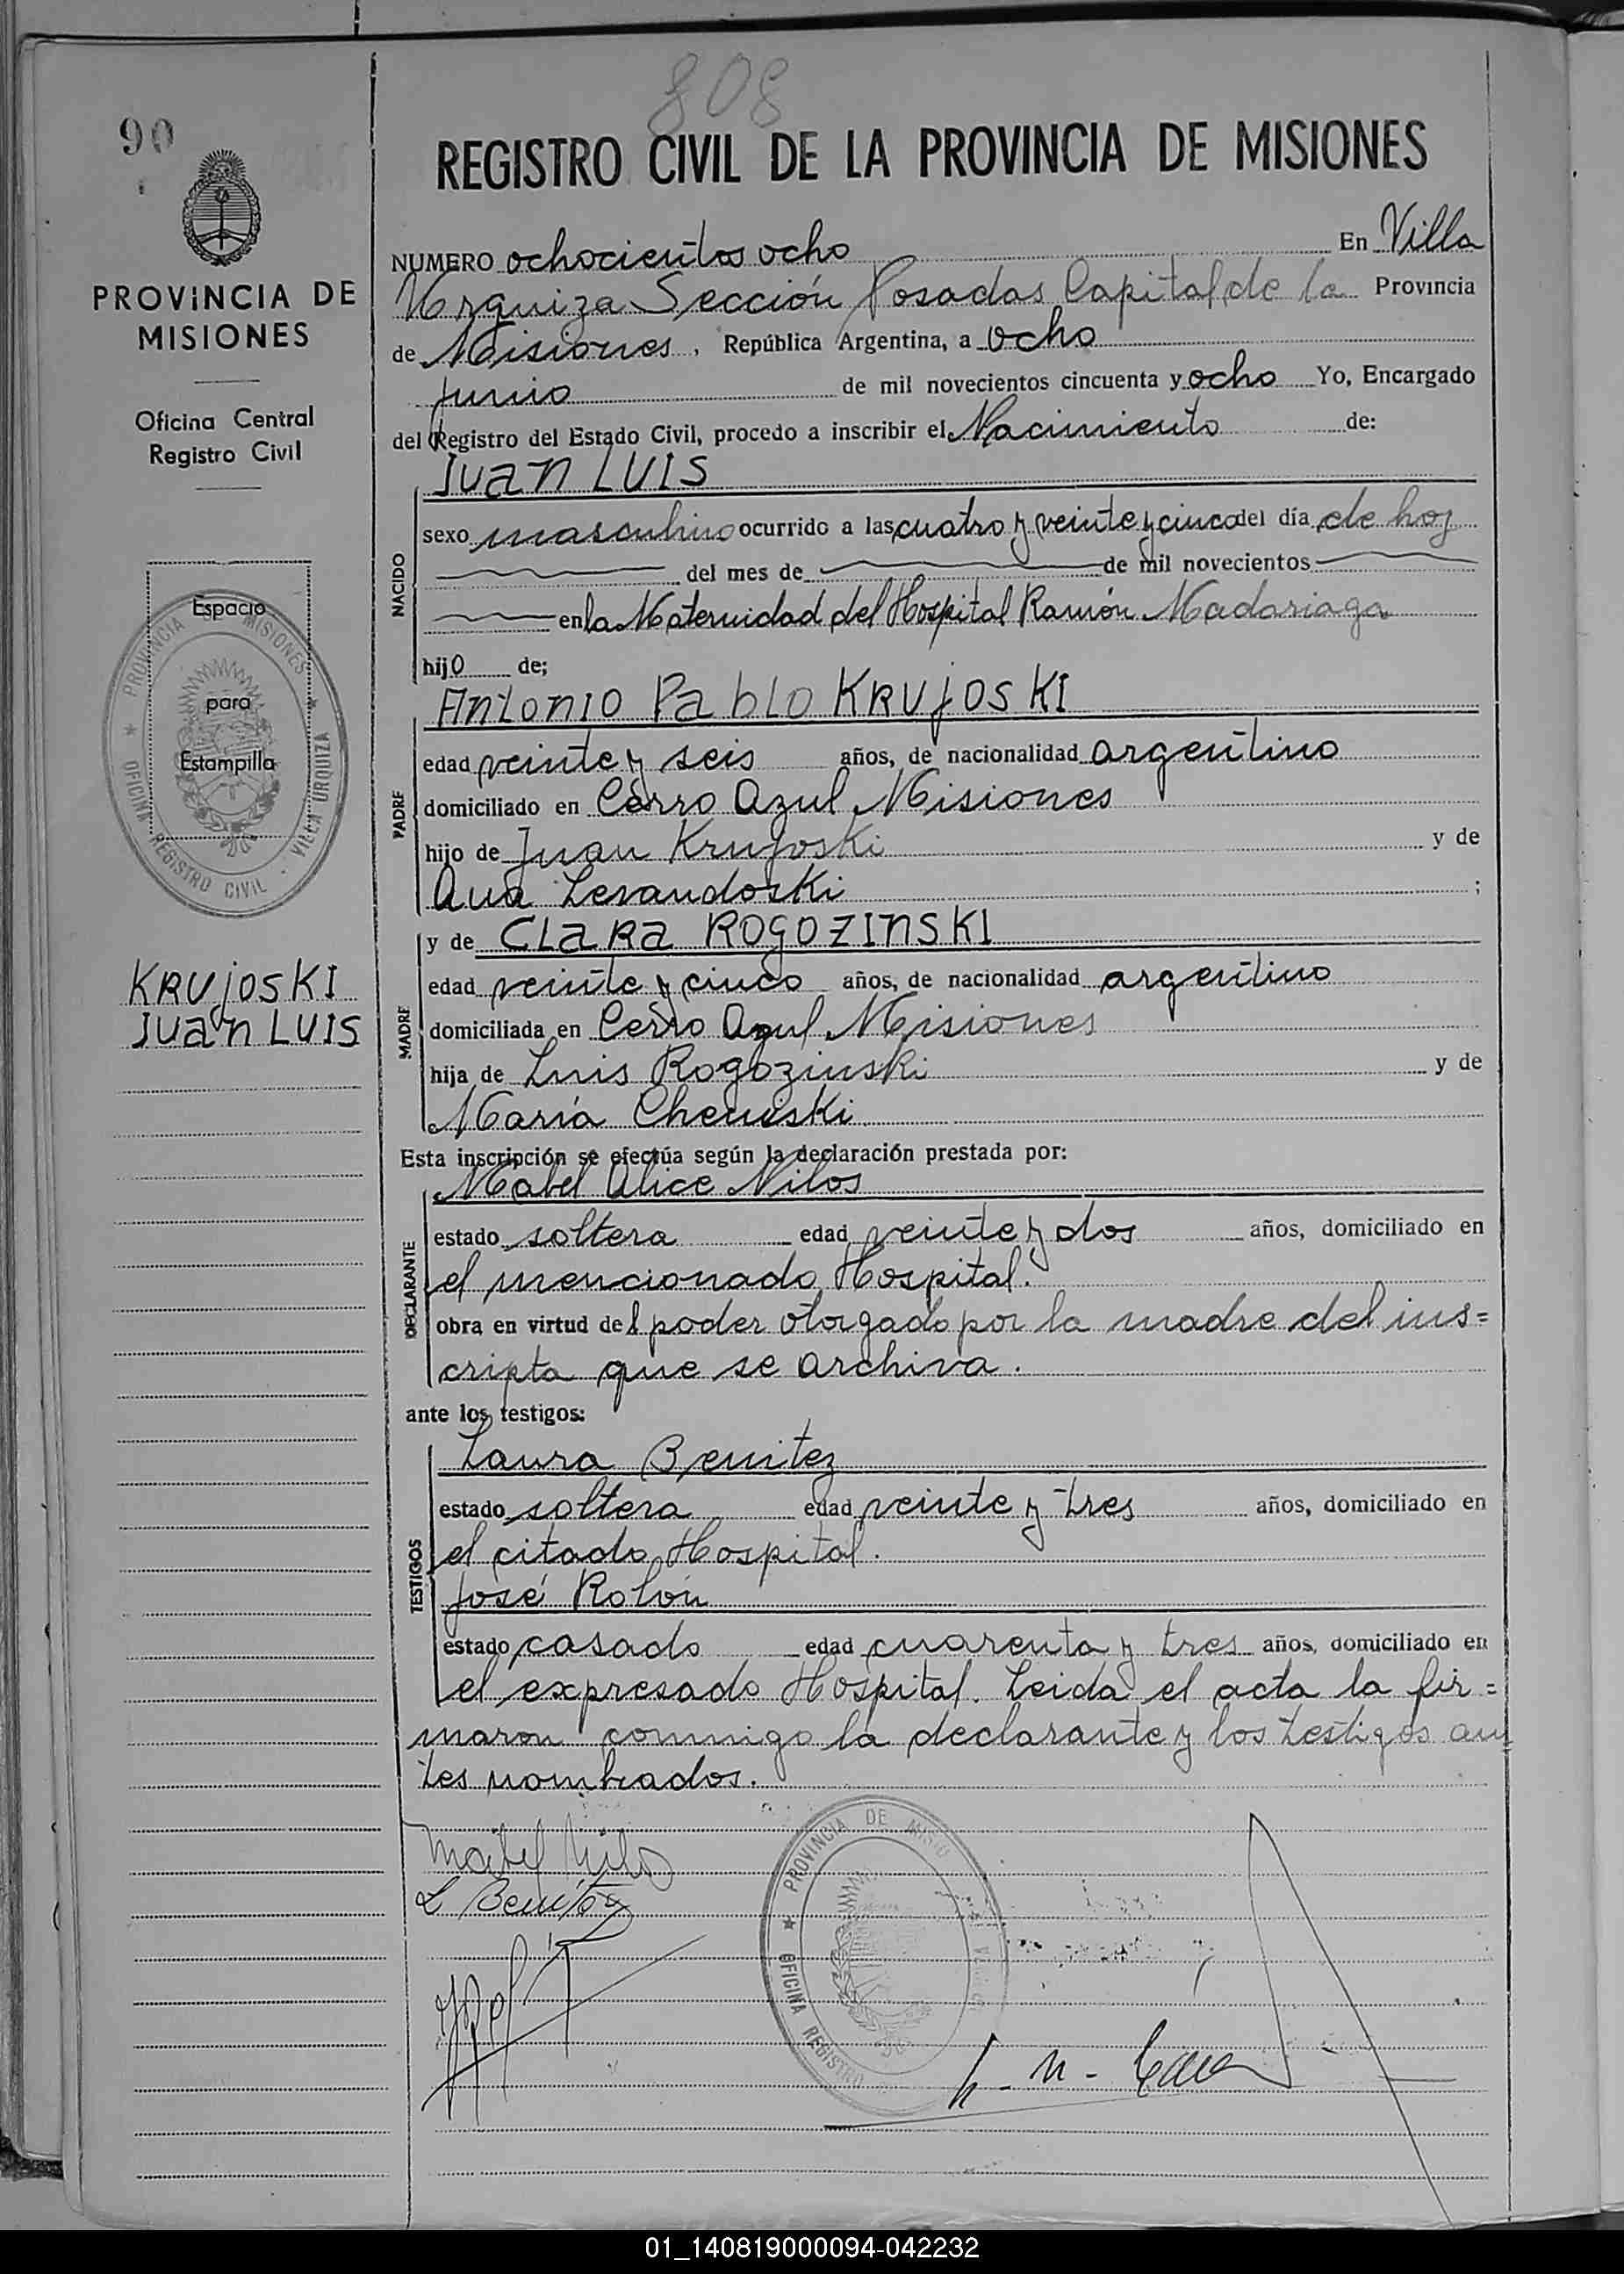 808
90
REGISTRO CIVIL DE LA PROVINCIA DE MISIONES
PROVINCIA DE
MISIONES
Oficina Central
Registro Civil
Espacio
para
Estampilla
PROVINCIA DE MISIONES
OFICINA REGISTRO CIVIL - VILLA URQUIZA
KRUjOSKI
JUan LUIS
NUMERO ochocientos ocho En Villa
Urquiza Sección Posadas Capital de la Provincia
de Misiones, República Argentina, a ocho
junio de mil novecientos cincuenta y ocho Yo, Encargado
del Registro del Estado Civil, procedo a inscribir el Nacimiento de:
NACIDO
JUan LUIS
sexo masculino ocurrido a las cuatro y veinte y cinco del día de hoy
del mes de de mil novecientos
en la Maternidad del Hospital Ramón Madariaga
hijo de;
PADRE
Antonio Pablo KRUjOSKI
edad veinte y seis años, de nacionalidad argentino
domiciliado en Cerro Azul Misiones
hijo de Juan Krujoski y de
Ana Lesandoski ;
MADRE
y de CLaRa ROgOZInSKI
edad veinte y cinco años, de nacionalidad argentino
domiciliada en Cerro Azul Misiones
hija de Luis Rogozinski y de
María
Esta inscripción se efectúa según la declaración prestada por:
DECLARANTE
Mabel Alice Nilos
estado soltera edad veinte y dos años, domiciliado en
el mencionado Hospital.
obra en virtud del poder otorgado por la madre del ins=
cripto que se archiva.
ante los testigos:
TESTIGOS
Laura Benitez
estado soltera edad veinte y tres años, domiciliado en
el citado Hospital.
José Rolón
estado casado edad cuarenta y tres años, domiciliado en
el expresado Hospital. Leida el acta la fir=
maron conmigo la declarante y los testigos an
tes nombrados.
Mabel Nilos
L Benítez
PROVINCIA DE MISIO
OFICINA REGISTRO
01_140819000094-042232